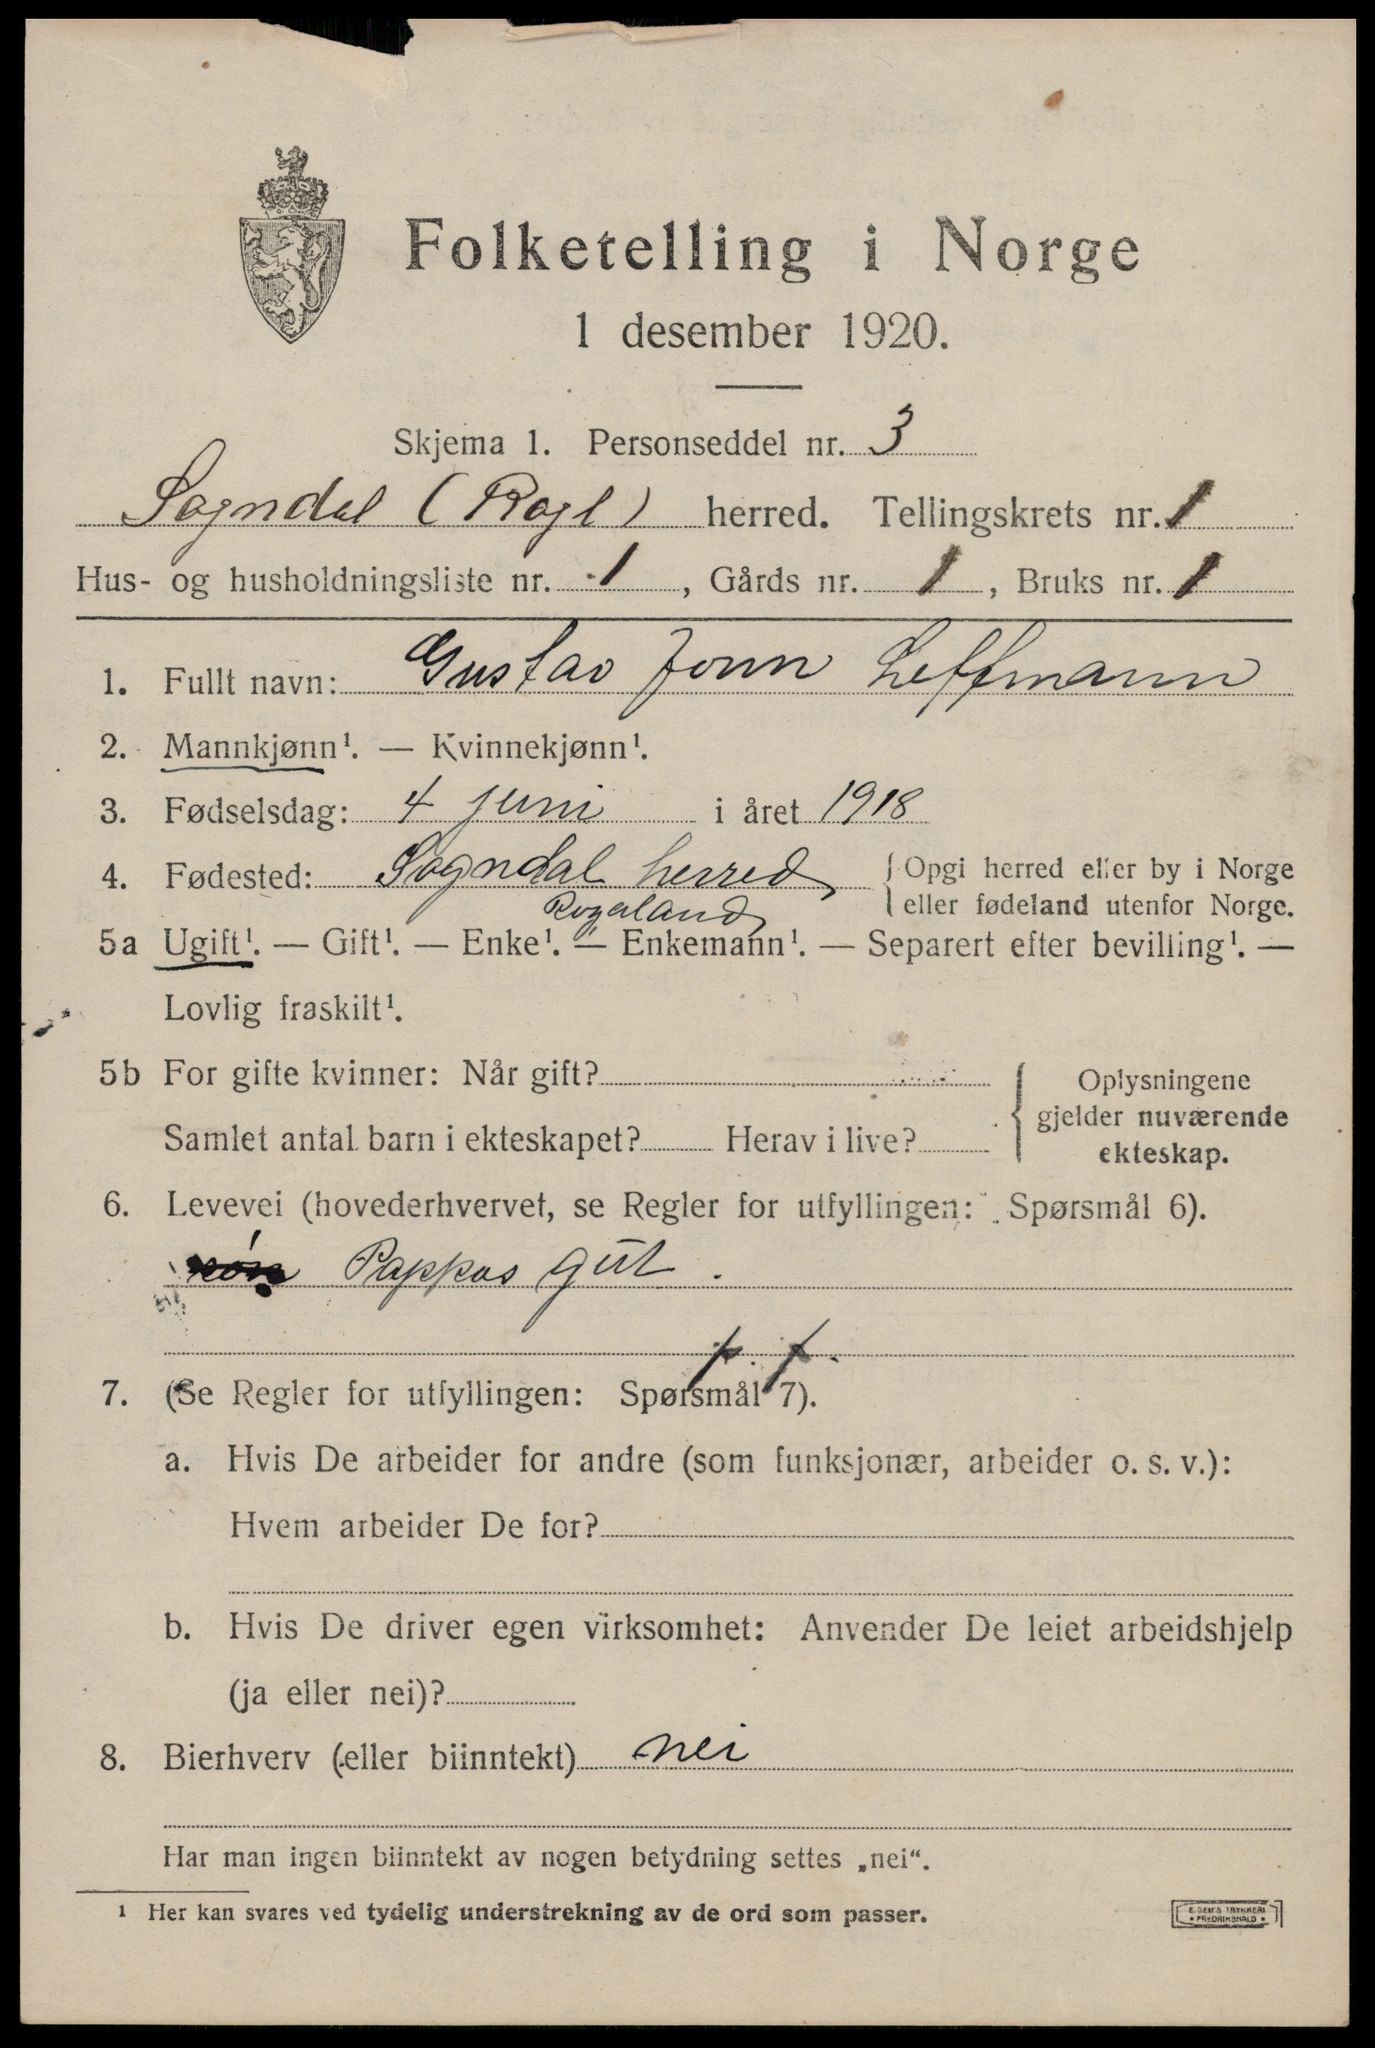 Folketelling i Norge
1 desember 1920.
Skjema 1. Personseddel nr. 3
Sogndal (Rogl) herred. Tellingskrets nr. 1
Hus- og husholdningsliste nr. 1, Gårds nr. 1, Bruks nr. 1
1. Fullt navn: Gustav Jonn Leffmann
2. Mannkjønn¹. — Kvinnekjønn¹.
3. Fødselsdag: 4 juni i året 1918
4. Fødested: Sogndal herred, Rogaland
{ Opgi herred eller by i Norge
eller fødeland utenfor Norge.
5a Ugift¹. — Gift¹. — Enke¹. — Enkemann¹. — Separert efter bevilling¹. —
Lovlig fraskilt¹.
5b For gifte kvinner: Når gift?
Samlet antal barn i ekteskapet? Herav i live?
{ Oplysningene
gjelder nuværende
ekteskap.
6. Levevei (hovederhvervet, se Regler for utfyllingen: Spørsmål 6).
Pappas gut.
7. (Se Regler for utfyllingen: Spørsmål 7).
a. Hvis De arbeider for andre (som funksjonær, arbeider o. s. v.):
Hvem arbeider De for?
b. Hvis De driver egen virksomhet: Anvender De leiet arbeidshjelp
(ja eller nei)?
8. Bierhverv (eller biinntekt) nei
Har man ingen biinntekt av nogen betydning settes „nei“.
¹ Her kan svares ved tydelig understrekning av de ord som passer.
E. SEM'S TRYKKERI
• FREDRIKSHALD •